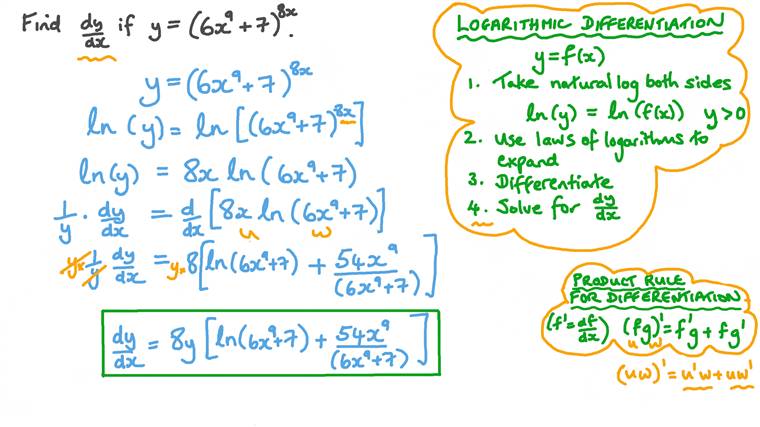 Find dy/dx if y = (6x⁹+7)⁸ˣ.
y = (6x⁹+7)⁸ˣ
ln(y) = ln[(6x⁹+7)⁸ˣ]
ln(y) = 8x ln(6x⁹+7)
1/y · dy/dx = d/dx [8x ln(6x⁹+7)]
u w
y× 1/y dy/dx = y×8[ln(6x⁹+7) + 54x⁹/(6x⁹+7)]
dy/dx = 8y[ln(6x⁹+7) + 54x⁹/(6x⁹+7)]
LOGARITHMIC DIFFERENTIATION
y = f(x)
1. Take natural log both sides
ln(y) = ln(f(x)) y>0
2. Use laws of logarithms to
expand
3. Differentiate
4. Solve for dy/dx
PRODUCT RULE
FOR DIFFERENTIATION
(f' = df/dx) (fg)' = f'g + fg'
u w
(uw)' = u'w + uw'